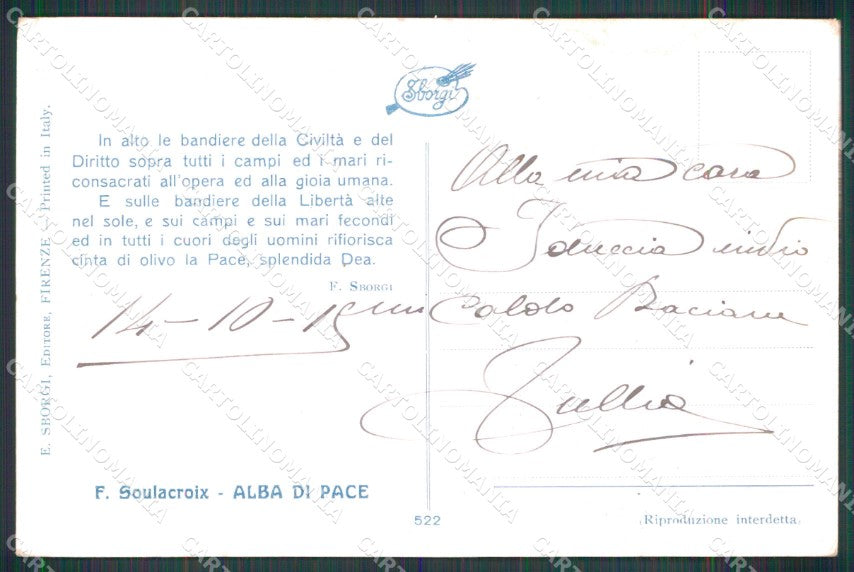 Sborgi
In alto le bandiere della Civiltà e del
Diritto sopra tutti i campi ed i mari ri-
consacrati all'opera ed alla gioia umana.
E sulle bandiere della Libertà alte
nel sole, e sui campi e sui mari fecondi
ed in tutti i cuori degli uomini rifiorisca
cinta di olivo la Pace, splendida Dea.
F. Sborgi
14-10-19
F. Soulacroix - ALBA DI PACE
E. SBORGI, Editore, FIRENZE - Printed in Italy.
Alla mia cara
Iduccia invio
Caldo Bacione
Tullia
522
(Riproduzione interdetta)
CARTOLINOMANIA